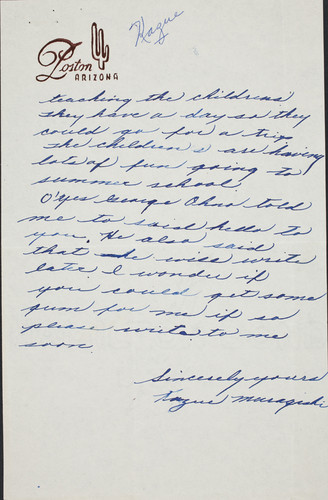 Kazue
Poston
ARIZONA
teaching the childrens'
They have a day so they
could go for a trip.
The childrens are having
lots of fun going to
summer school.
O'Yes George Ohno told
me to said hello to
you. He also said
that he will write
late. I wonder if
you could get some
gum for me if so
please write to me
soon
Sincerely yours
Kazue